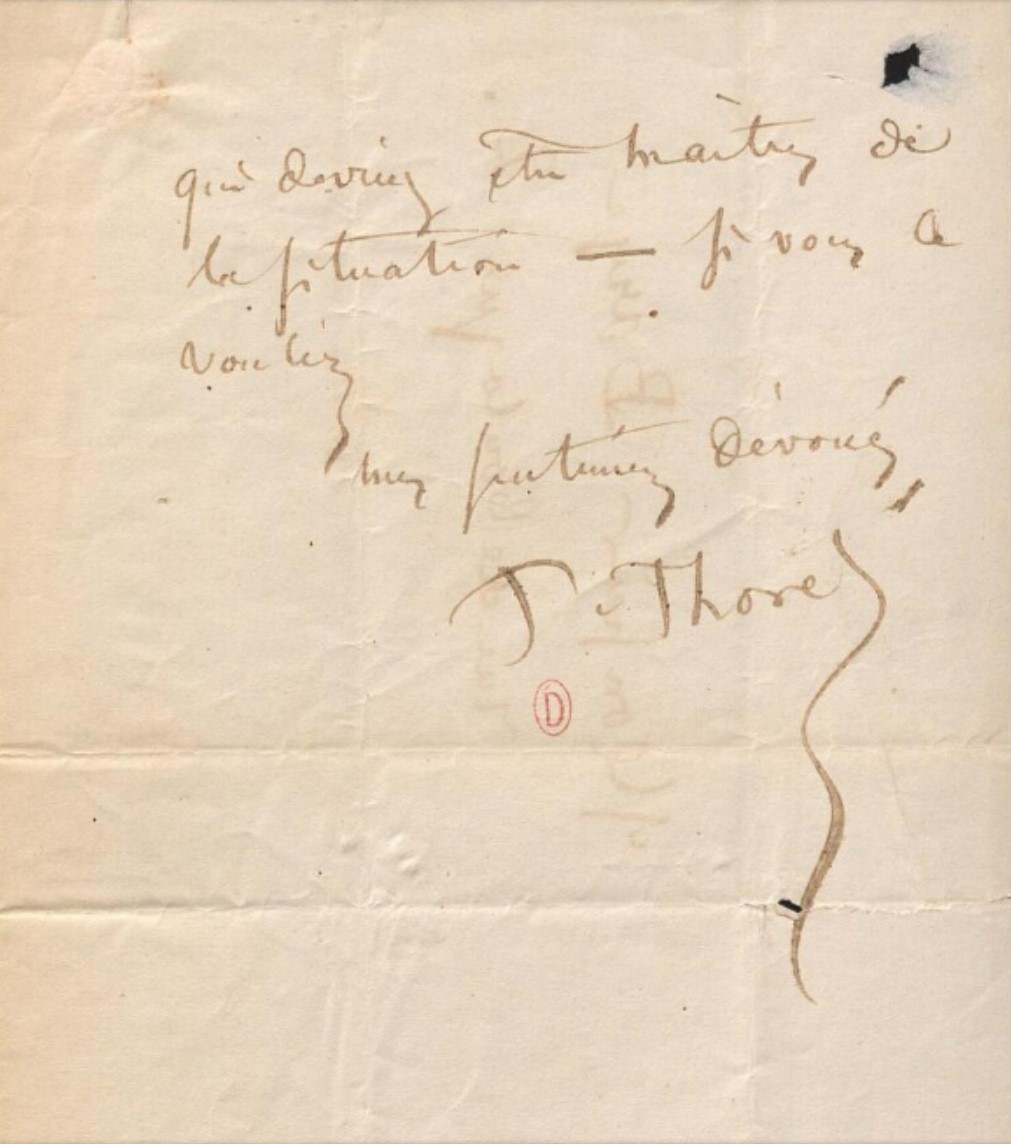 qui devriez être maîtres de
la situation — si vous le
vouliez
mes sentimens dévoués,
T. Thoré
D